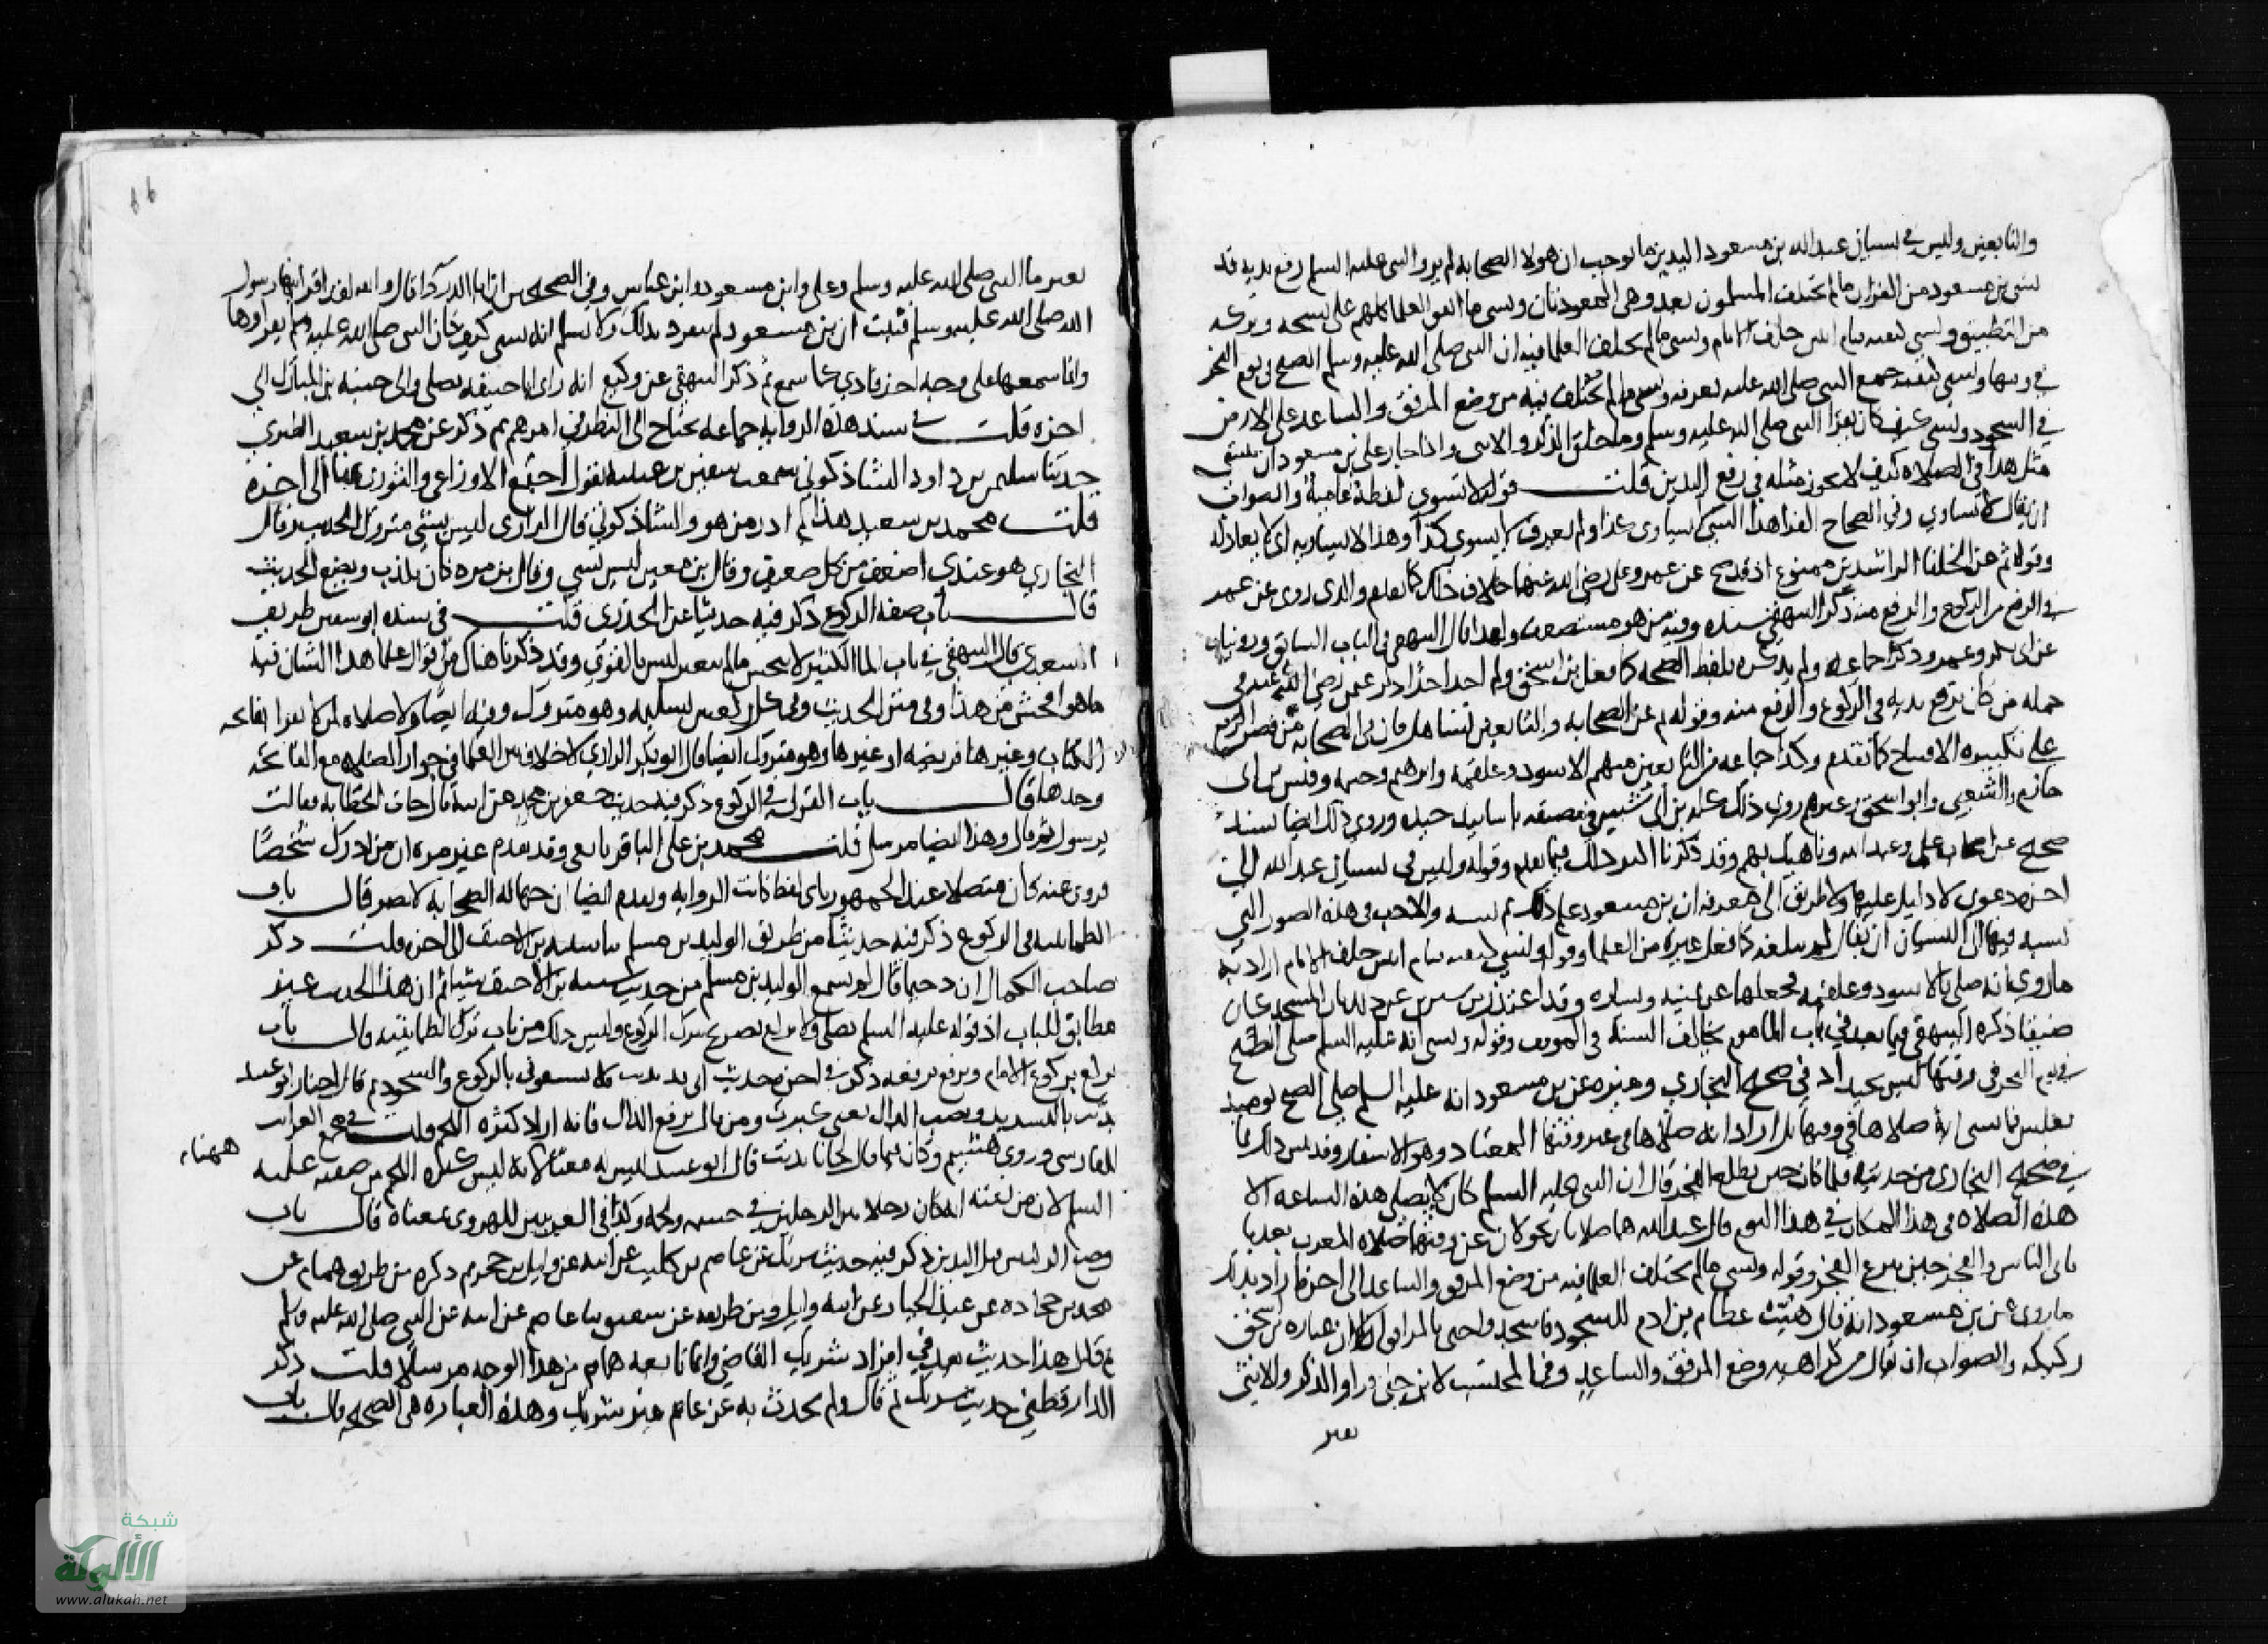 والتابعين وليس في نسيان عبد الله بن مسعود اليدين ما يوجب ان هولا الصحابه لم يروا النبي عليه السلم رفع يديه قد
نسي بن مسعود من القران ما لم يختلف المسلمون بعد وهي المعوذتان ونسي ما اتفق العلما كلهم على نسخه وتركه
من التطبيق ونسي كيفيه قيام اثنين خلف الامام ونسي ما لم يختلف العلما فيه ان النبي صلى الله عليه وسلم صلى الصبح في يوم النحر
في وقتها ونسي كيفيه جمع النبي صلى الله عليه بعرفه ونسي ما لم يختلف فيه من وضع المرفق والساعد على الارض
في السجود ونسي كيف كان يقرا النبي صلى الله عليه وسلم وما خلق الذكر والانثى واذا جاز على بن مسعود ان ينسى
مثل هذا في الصلاه كيف لا يجوز مثله في رفع اليدين قلت قوله لا تسوى لفظة عامية والصواب
ان يقال لا تساوي وفي الصحاح الفرا هذا الشي لا يساوي كذا ولم يعرف لا يسوي كذا وهذا لا يساويه اي لا يعادله
وقوله ثم عن الخلفا الراشدين ممنوع اذ قد صح عن عمر وعلي رضي الله عنهما خلاف ذلك كما تقدم والذي روي عن عمر
في الرفع من الركوع والرفع منه ذكر البيهقي سنده وفيه من هو مستضعف ولهذا قال البيهقي في الباب السابق وروينا
عن ابي بكر وعمر وذكر جماعه ولم يذكره بلفظ الصحه كما فعل بن اسحق ولم اجد احدا ذكر عثمن رضي الله عنه في
جمله من كان يرفع يديه في الركوع والرفع منه وقوله ثم عن الصحابه والتابعين تساهل فان في الصحابه من قصر الرفع
على تكبيره الافتتاح كما تقدم وكذا جماعه من التابعين منهم الاسود وعلقمه وابرهيم وخيثمه وقيس بن ابي
حازم والشعبي وابو اسحق وغيرهم روى ذلك كله بن ابي شيبه في مصنفه باسانيد جيده وروي ذلك ايضا بسند
صحيح عن اصحاب علي وعبد الله وناهيك بهم وقد ذكرنا اكثر ذلك فيما تقدم وقوله وليس في نسيان عبد الله الى
اخره دعوى لا دليل عليها ولا طريق الى معرفه ان بن مسعود علم ذلك ثم نسيه والادب في هذه الصور التي
نسبه فيها الى النسيان ان يقال لم يبلغه كما فعل غيره من العلما وقوله ونسي كيفيه قيام اثنين خلف الامام اراد به
ما روي انه صلى بالاسود وعلقمه فجعلهما عن يمينه ويساره وقد اعتذر بن سيرين عن ذلك بان المسجد كان
ضيقا ذكره البيهقي فيما بعد في باب الماموم يخالف السنة في الموقف وقوله ونسي انه عليه السلم صلى الصبح
في يوم النحر في وقتها ليس بجيد اذ في صحيح البخاري وغيره عن بن مسعود انه عليه السلم صلى الصبح يوميذ
بغلس فما نسي انه صلاها في وقتها بل اراد انه صلاها في غير وقتها المعتاد وهو الاسفار وقد بين ذلك ما
في صحيح البخاري من حديثه فلما كان حين يطلع الفجر قال ان النبي عليه السلم كان لا يصلي هذه الساعه الا
هذه الصلاه في هذا المكان في هذا اليوم قال عبد الله هما صلاتان يحولان عن وقتهما صلاه المغرب بعد ما
ياتي الناس والفجر حين يبزغ الفجر وقوله ونسي ما لم يختلف العلما فيه من وضع المرفق والساعد الى اخره اراد بذلك
ما روي عن بن مسعود انه قال هيئت عظام بن ادم للسجود فاسجدوا حتى بالمرافق الا ان عباره بن اسحق
ركيكه والصواب ان يقال من كراهيه وضع المرفق والساعد وفي المحتسب لابن جني قرا والذكر والانثى
بغير
بغير ما النبي صلى الله عليه وسلم وعلي وابن مسعود وابن عباس وفي الصحيحين ان ابا الدردا قال والله لقد اقرانيها رسول
الله صلى الله عليه وسلم فثبت ان بن مسعود لم ينفرد بذلك ولا نسلم انه نسي كيف كان النبي صلى الله عليه وسلم يقراوها
وانما سمعها على وجه اخر فادى كما سمع ثم ذكر البيهقي عن وكيع انه راى ابا حنيفه يصلي والى جنبه بن المبارك الى
اخره قلت في سند هذه الروايه جماعه يحتاج الى النظر في امرهم ثم ذكر عن محمد بن سعيد الطبري
حدثنا سليمن بن داود الشاذكوني سمعت سفين بن عيينه يقول اجتمع الاوزاعي والثوري بمنا الى اخره
قلت محمد بن سعيد هذا لم ادر من هو والشاذكوني قال الرازي ليس بشي متروك الحديث وقال
البخاري هو عندي اضعف من كل ضعيف وقال بن معين ليس بشي وقال بن مره كان يكذب ويضع الحديث
قال باب صفه الركوع ذكر فيه حديثا عن الخدري قلت في سنده ابو سفين طريف
السعدي قال البيهقي في باب الما الكثير لا ينجس ما لم يتغير ليس بالقوي وقد ذكرنا هناك من اقوال علما هذا الشان فيه
ما هو افحش من هذا وفي متن الحديث وفي كل ركعتين تسليمه وهو متروك وفيه ايضا ولا صلاه لمن لا يقرا بفاتحه
الكتاب وغيرها فريضه او غيرها وهو متروك ايضا قال ابو بكر الرازي لا خلاف بين العلما في جواز الصلاه مع الفاتحه
وحدها قال باب القراه في الركوع ذكر فيه حديث جعفر بن محمد عن ابيه قال جات الحطابه فقالت
يرسول ثم قال وهذا ايضا مرسل قلت محمد بن علي الباقر تابعي وقد تقدم غير مره ان من ادرك شخصا
فروى عنه كان متصلا عند الجمهور باي لفظ كانت الروايه وتقدم ايضا ان جهاله الصحابه لا تضر قال باب
الطمانينه في الركوع ذكر فيه حديثا من طريق الوليد بن مسلم ثنا شيبه بن الاحنف الى اخره قلت ذكر
صاحب الكمال ان دحيما قال لم يسمع الوليد بن مسلم من حديث شيبه بن الاحنف شيا ثم ان هذا الحديث غير
مطابق للباب اذ قوله عليه السلم يصلي ولا يركع تصريح بترك الركوع وليس ذلك من باب ترك الطمانينه قال باب
يركع بركوع الامام ويرفع برفعه ذكر في اخره حديث اني بدنت فلا تسبقوني بالركوع والسجود ثم قال اختار ابو عبيد
بدنت بالتشديد ونصب الدال يعني كبرت ومن قال برفع الدال فانه اراد كثره اللحم قلت في مجمع الغرايب
للفارسي وروى هشيم وكان فيما قال لحانا بدنت قال ابو عبيد ليس له معنا لانه ليس كثره اللحم من صفته عليه
ههنا
السلم لان من نعته انه كان رجلا بين الرجلين في جسمه ولحمه وكذا في الغريبين للهروي بمعناه قال باب
وضع الركبتين قبل اليدين ذكر فيه حديث شريك عن عاصم بن كليب عن ابيه عن وايل بن حجر ثم ذكره من طريق همام عن
محمد بن جحاده عن عبد الجبار عن ابيه وايل ومن طريقه عن شقيق ثنا عاصم عن ابيه عن النبي صلى الله عليه وسلم
ثم قال هذا حديث يعد في افراد شريك القاضي وانما تابعه همام من هذا الوجه مرسلا قلت ذكر
الدارقطني حديث شريك ثم قال ولم يحدث به عن عاصم غير شريك وهذه العباره هي الصحيحه قال باب
شبكة
الألوكة
www.alukah.net